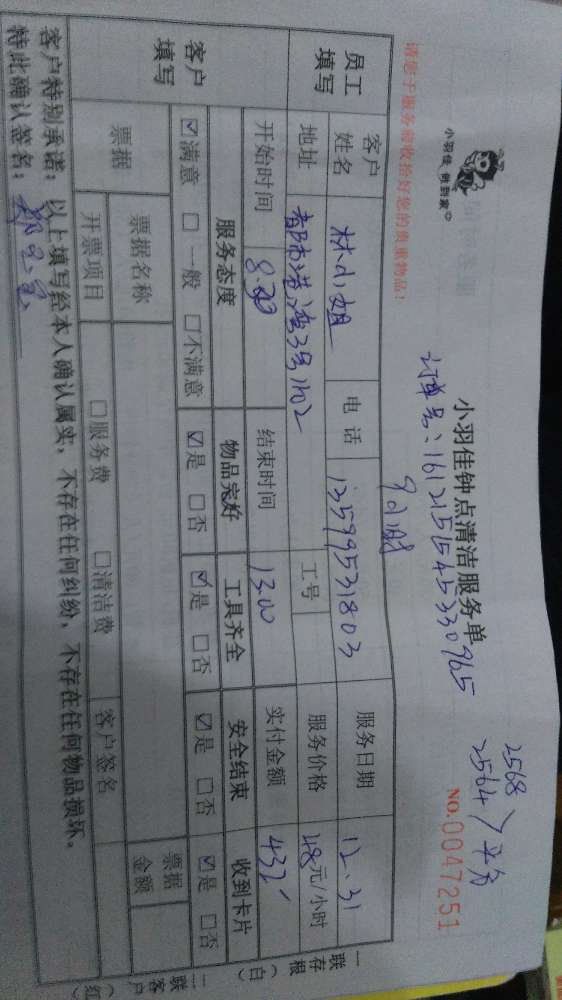 小羽佳 创到家
小羽佳钟点清洁服务单
NO.0047251
订单号：1612151545330965
2568
2564 〉平分
请您于服务前收拾好您的贵重物品！
9小时
员工填写
客户姓名 林小姐 电话 13599531803 服务日期 12.31
地址 都市港湾3号1102 工号 服务价格 48元/小时
开始时间 8:30 结束时间 13:00 实付金额 432
客户填写
服务态度 物品完好 工具齐全 安全结束 收到卡片
☑满意 □一般 □不满意 ☑是 □否 ☑是 □否 ☑是 □否 ☑是 □否
票据 票据名称 票据金额
开票项目 □服务费 □清洁费 客户签名
客户特别承诺：以上填写经本人确认属实，不存在任何纠纷，不存在任何物品损坏。
特此确认签名：
一联存根（白）
二联客户（红